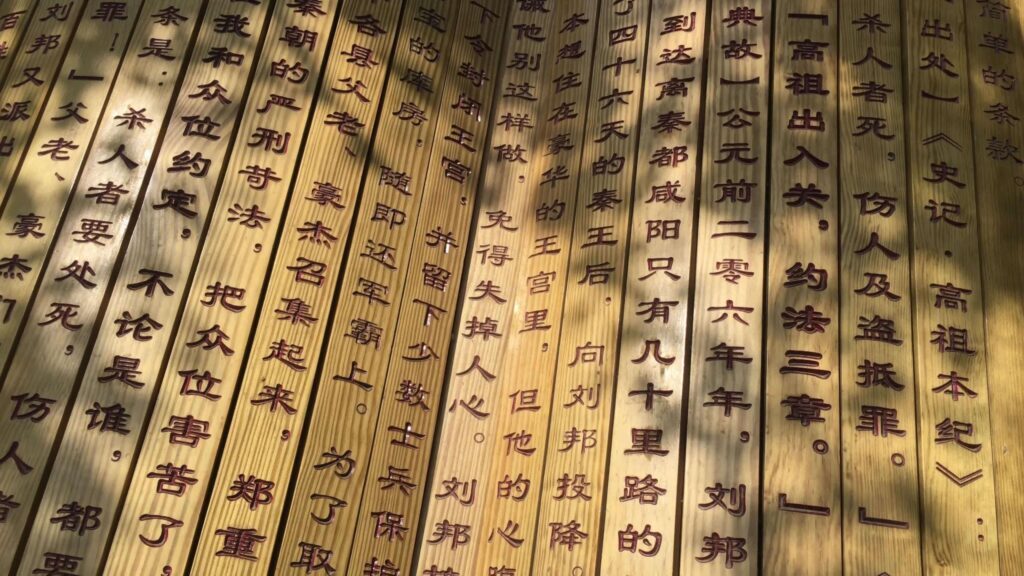 简单的条款。
出处】《史记·高祖本纪》：
杀人者死，伤人及盗抵罪。」
「高祖出入关，约法三章。」
典故】公元前二零六年年，刘邦
到达离秦都咸阳只有几十里路的
了四十六天的秦王后，向刘邦投降。
本想住在豪华的王宫里，但他的心
诫他别这样做，免得失掉人心。刘邦
下令封闭王宫，并留下少数士兵保
室的库房，随即还军霸上。为了取
各县父老、豪杰召集起来，郑重
秦朝的严刑苛法，把众位害苦了
我和众位约定，不论是谁，都要
条是：杀人者要处死，伤人者
罪！」父老、豪杰们
刘邦又派出